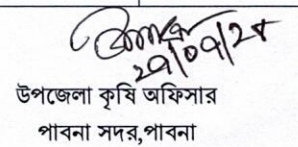 ২৭/০৭/২৫
উপজেলা কৃষি অফিসার
পাবনা সদর,পাবনা